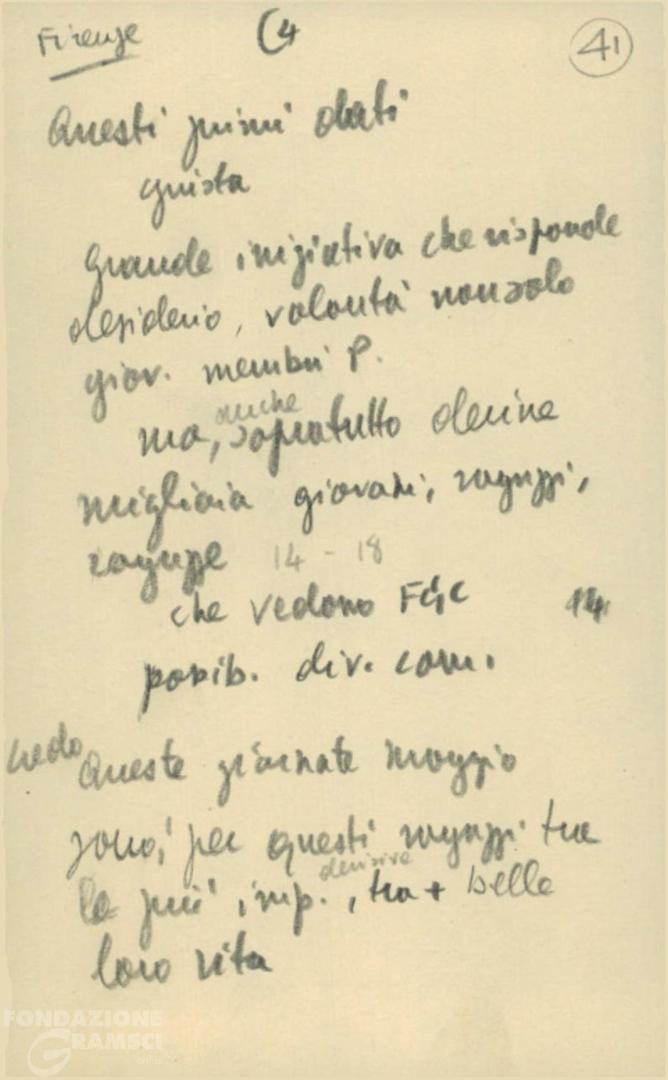 Firenze (4 41
Questi primi dati
giusta
grande iniziativa che risponde
desiderio, volontà non solo
giov. membri P.
anche
ma, sopratutto decine
migliaia giovani, ragazzi,
ragazze 14 - 18
che vedono FGC 14
possib. div. com.
credo Queste giornate maggio
sono, per questi ragazzi tra
decisive
le più imp., tra + belle
loro vita
FONDAZIONE
GRAMSCI